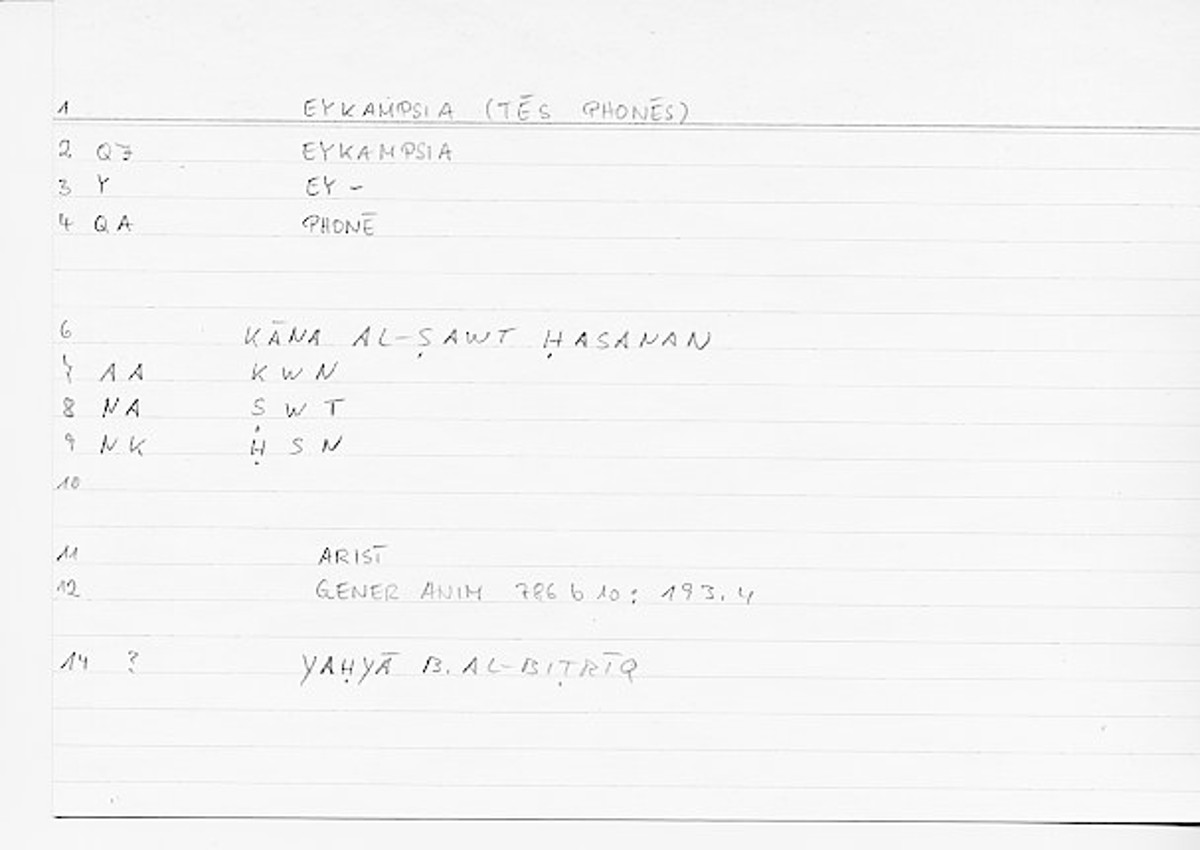 1 EYKAMPSIA (TĒS PHONĒS)
2 QZ EYKAMPSIA
3 Y EY-
4 QA PHONĒ
6 KĀNA AL-ṢAWT ḤASANAN
7 AA KWN
8 NA ṢWT
9 NK ḤSN
10
11 ARIST
12 GENER ANIM 786 b 10 : 193.4
14 ? YAḤYĀ B. AL-BIṬRĪQ